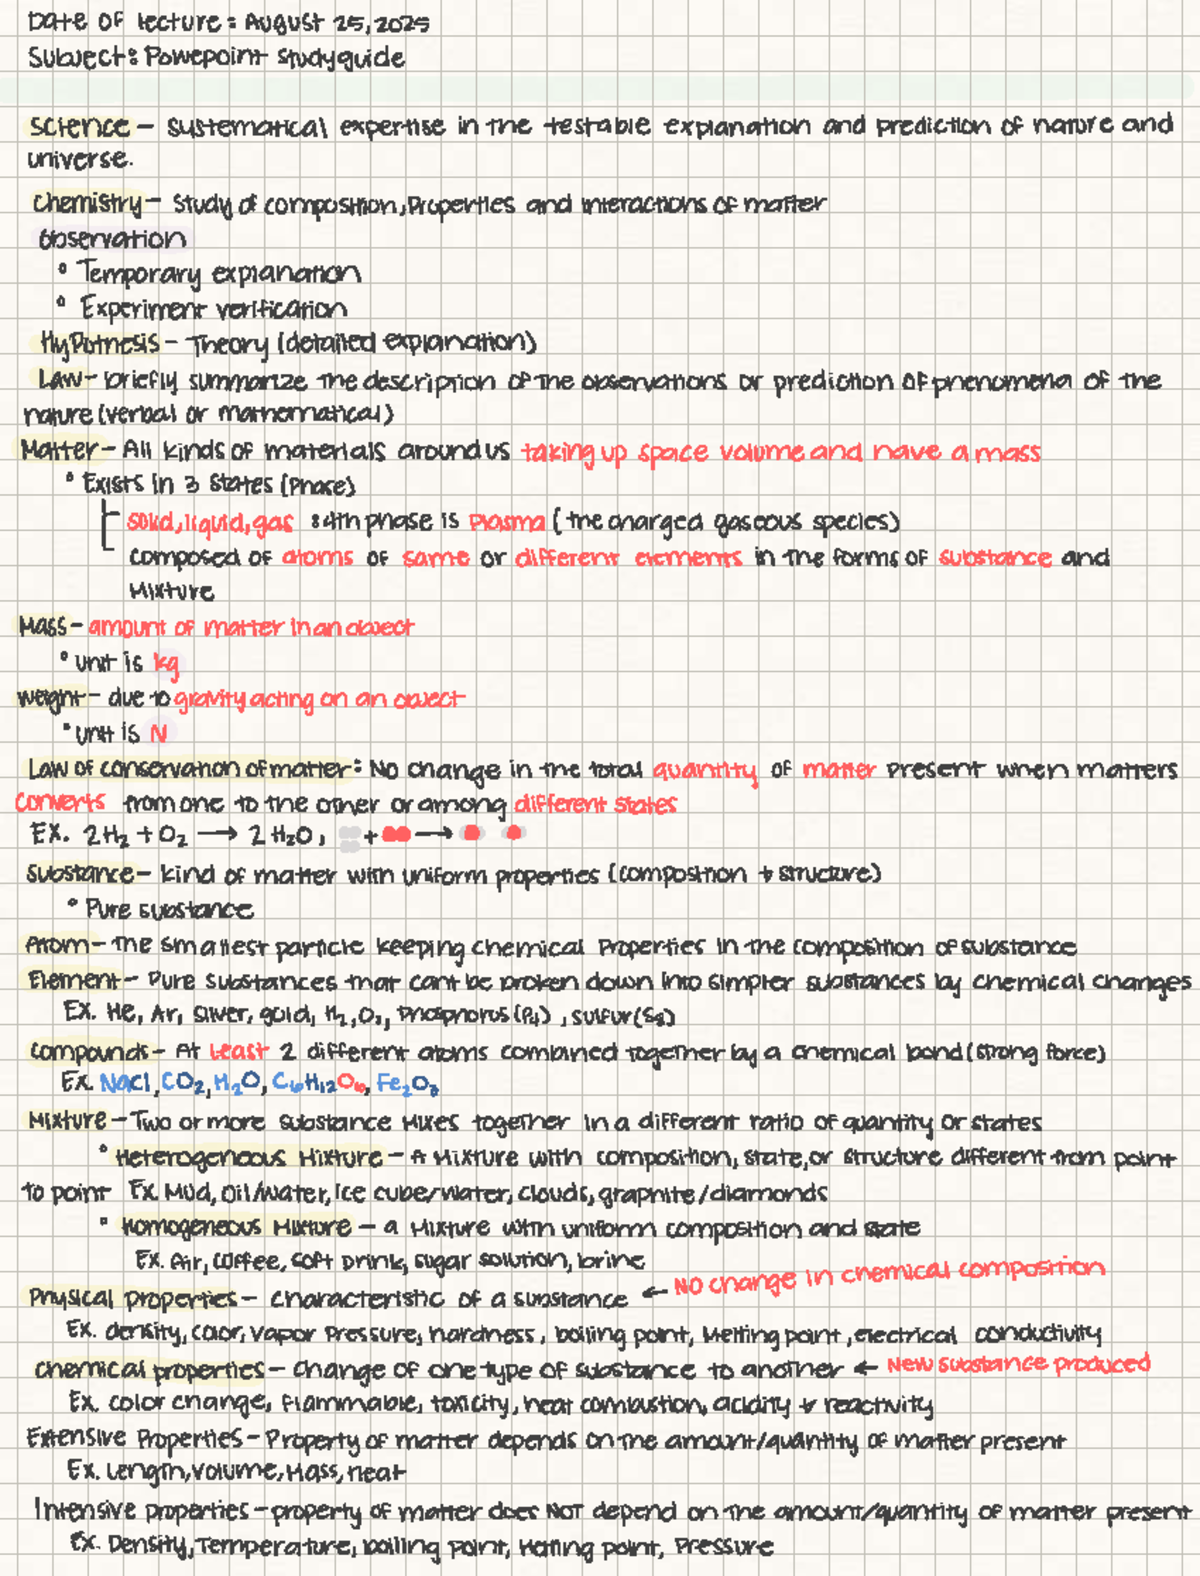 Date of lecture: August 25, 2025
Subject: Powepoint studyguide
Science - Systematical expertise in the testable explanation and prediction of nature and
universe.
Chemistry - Study of composition, Properties and interactions of matter
Observation
° Temporary explanation
° Experiment verification
Hypothesis - Theory (detailed explanation)
Law - briefly summarize the description of the observations or prediction of phenomena of the
nature (verbal or mathematical)
Matter - All kinds of materials around us taking up space volume and have a mass
° Exists in 3 States (Phase)
solid, liquid, gas : 4th phase is Plasma ( the charged gaseous species)
composed of atoms of same or different elements in the forms of substance and
Mixture
Mass - amount of matter in an object
° unit is kg
Weight - due to gravity acting on an object
° unit is N
Law of conservation of matter: No change in the total quantity of matter present when matters
converts from one to the other or among different states
EX. 2H₂ + O₂ → 2 H₂O, + →
Substance - kind of matter with uniform properties (composition + structure)
° Pure substance
Atom - The smallest particle keeping chemical Properties in the composition of substance
Element - Pure substances that cant be broken down into simpler substances by chemical changes
Ex. He, Ar, Silver, gold, H₂, O₂, Phosphorus (P₄) , sulfur (S₈)
Compounds - At least 2 different atoms combined together by a chemical bond (strong force)
Ex. NaCl, CO₂, H₂O, C₆H₁₂O₆, Fe₂O₃
Mixture - Two or more substance Mixes together in a different ratio of quantity or states
° Heterogeneous Mixture - A Mixture with composition, state, or structure different from point
to point Ex. Mud, Oil/water, Ice cube/water, clouds, graphite/diamonds
° Homogeneous Mixture - a Mixture with uniform composition and state
Ex. Air, coffee, soft Drink, sugar solution, brine
Physical properties - characteristic of a substance ← NO change in chemical composition
Ex. density, color, vapor Pressure, hardness, boiling point, Melting point, electrical conductivity
Chemical properties - change of one type of substance to another ← New substance produced
Ex. color change, flammable, toxicity, heat combustion, acidity + reactivity
Extensive Properties - Property of matter depends on the amount/quantity of matter present
Ex. Length, volume, Mass, heat
Intensive properties - property of matter does NOT depend on the amount/quantity of matter present
Ex. Density, Temperature, boiling point, Melting point, Pressure